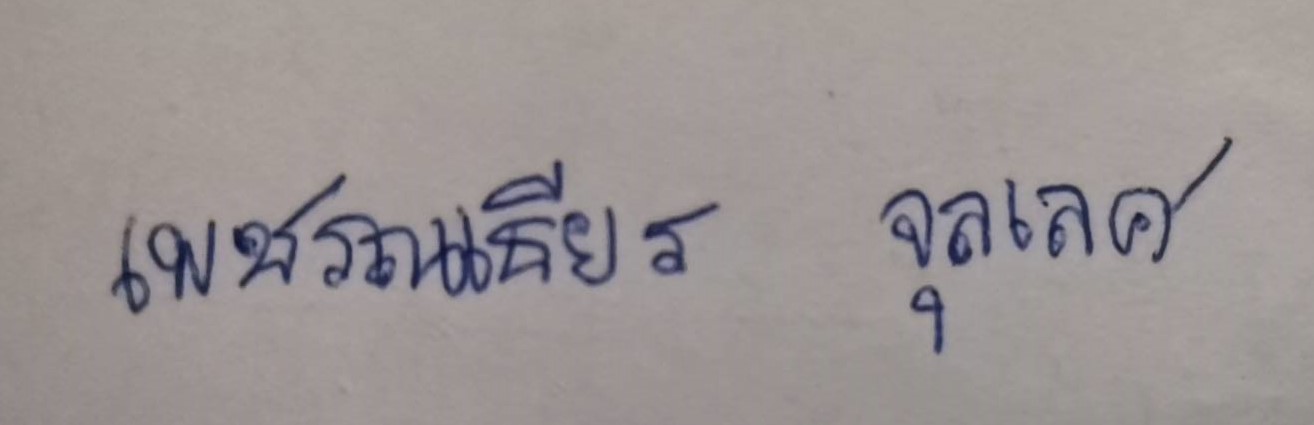 เพชรณเธียร จุลเลศ